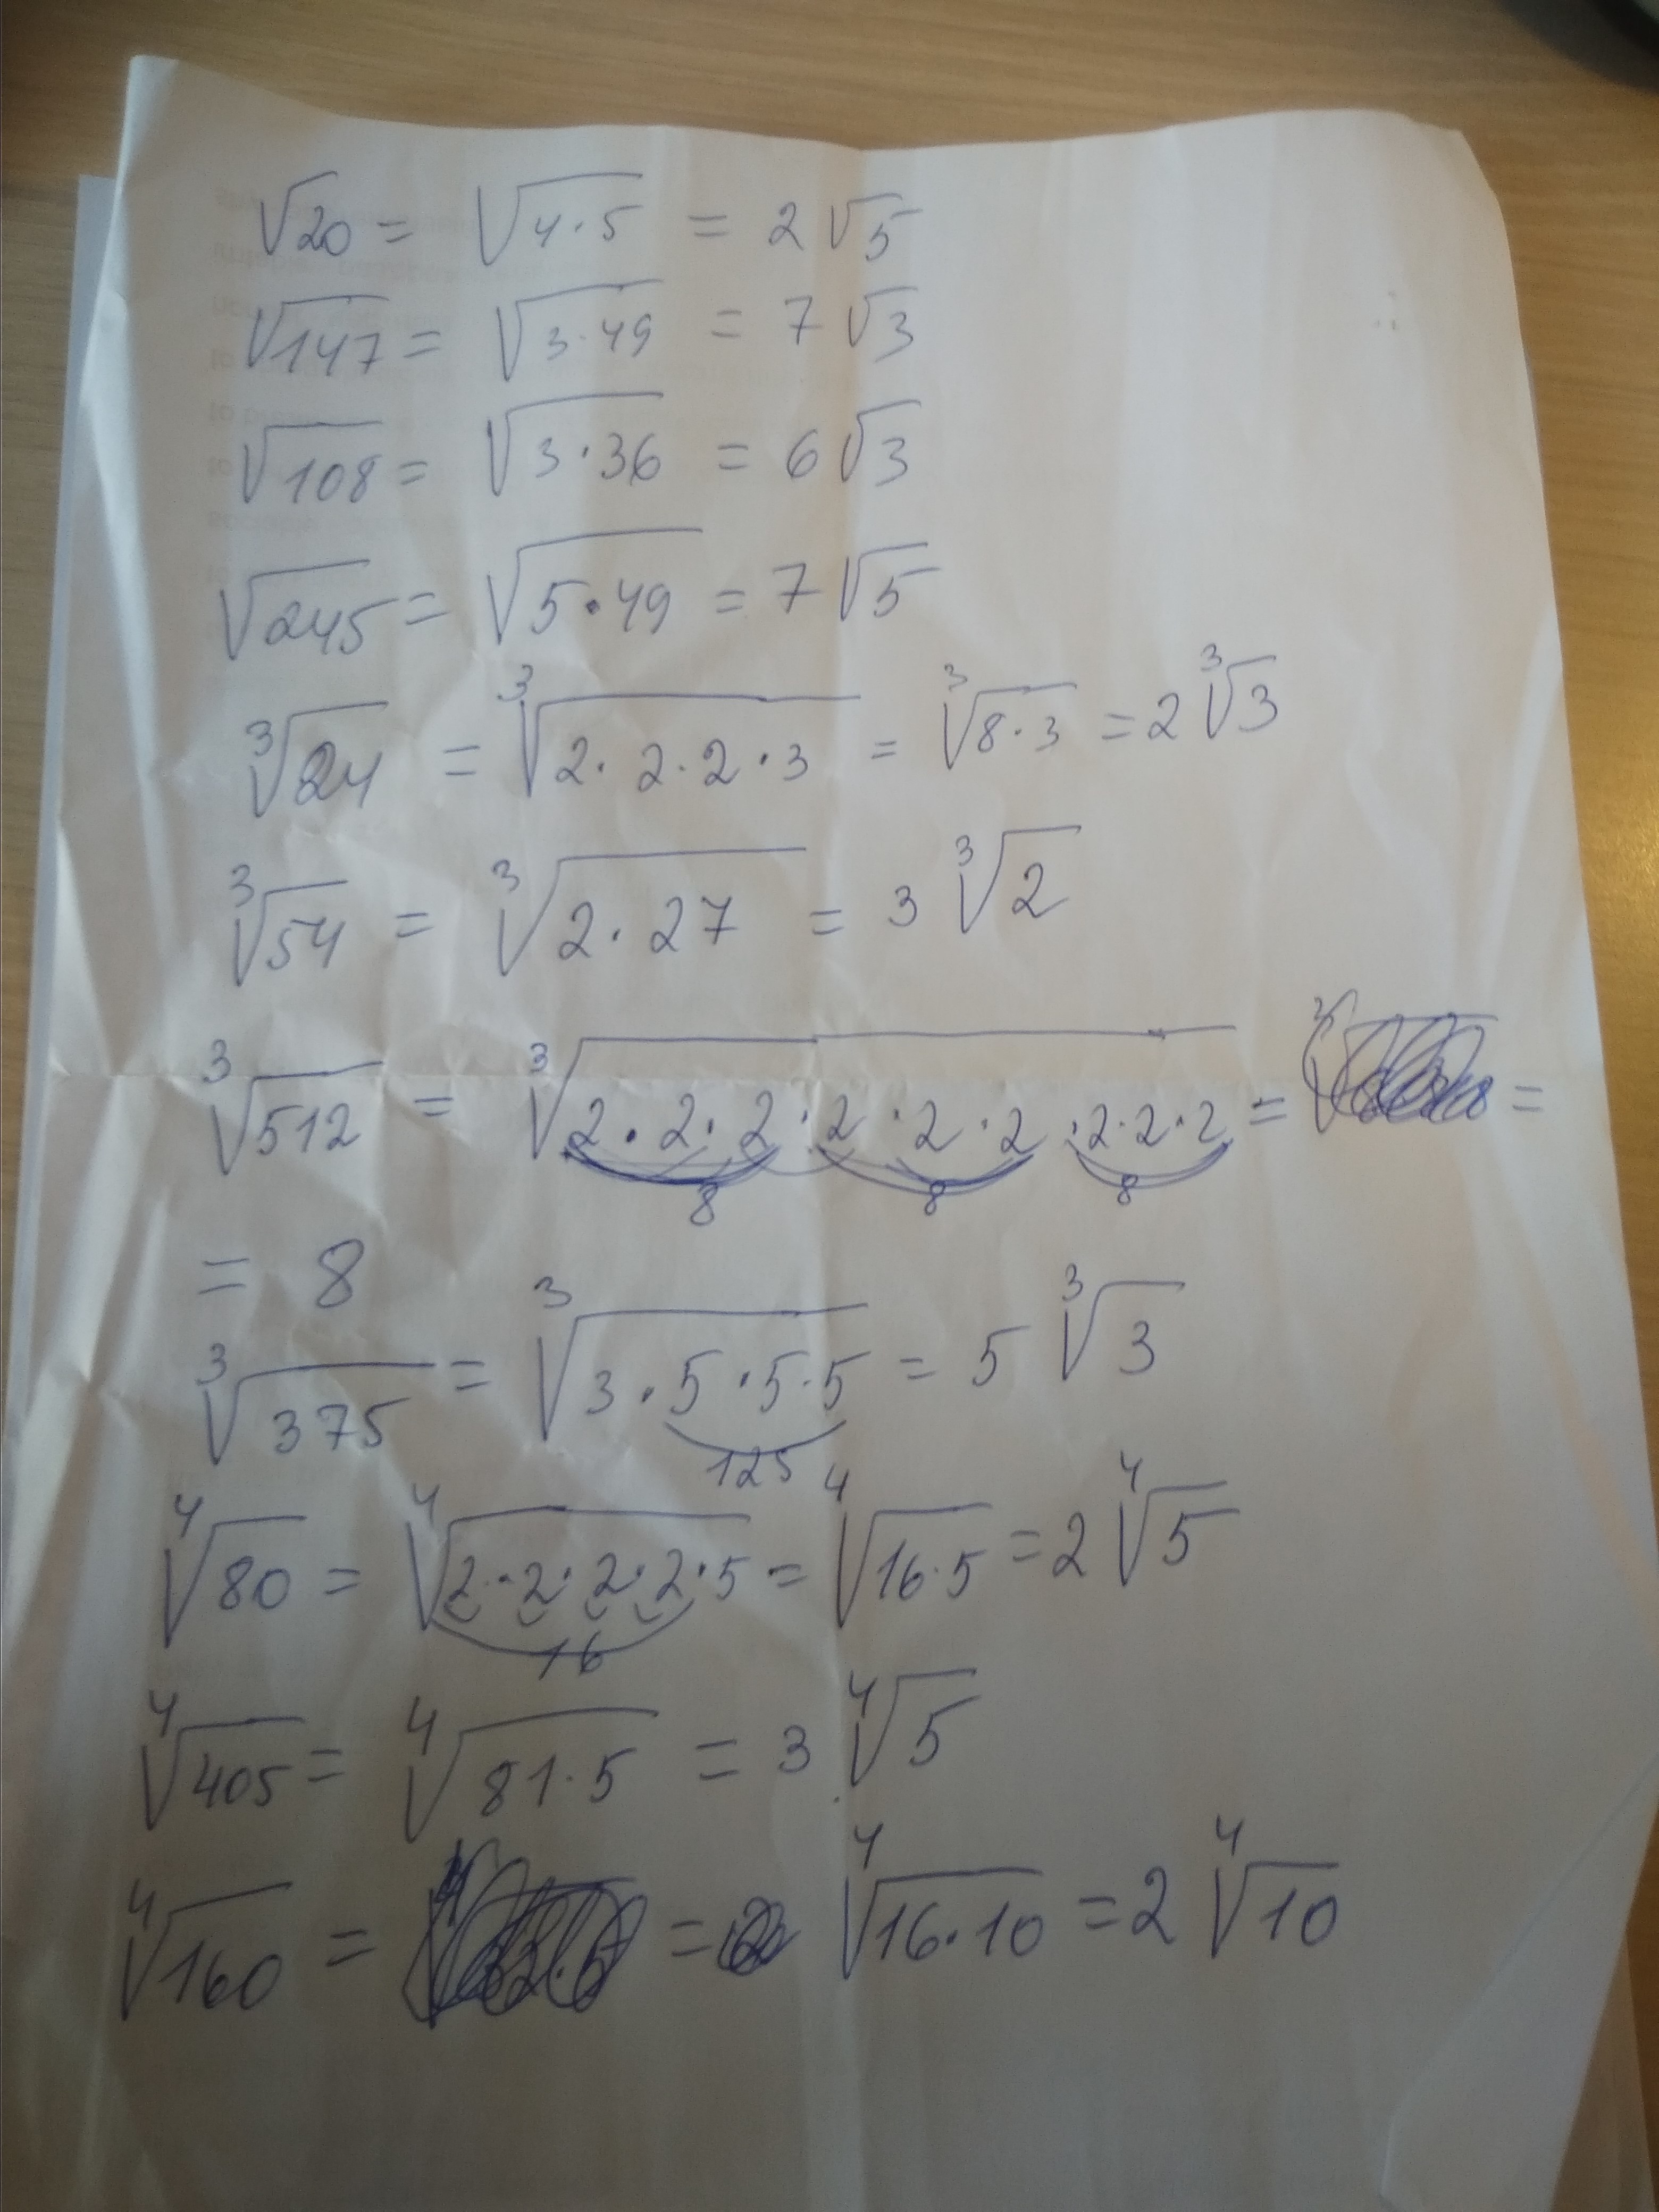 √20 = √4·5 = 2√5
√147 = √3·49 = 7√3
√108 = √3·36 = 6√3
√245 = √5·49 = 7√5
³√24 = ³√2·2·2·3 = ³√8·3 = 2³√3
³√54 = ³√2·27 = 3³√2
³√512 = ³√2·2·2·2·2·2·2·2·2 = =
8 8 8
= 8
³√375 = ³√3·5·5·5 = 5³√3
125
⁴√80 = ⁴√2·2·2·2·5 = ⁴√16·5 = 2⁴√5
16
⁴√405 = ⁴√81·5 = 3⁴√5
⁴√160 = = ⁴√16·10 = 2⁴√10